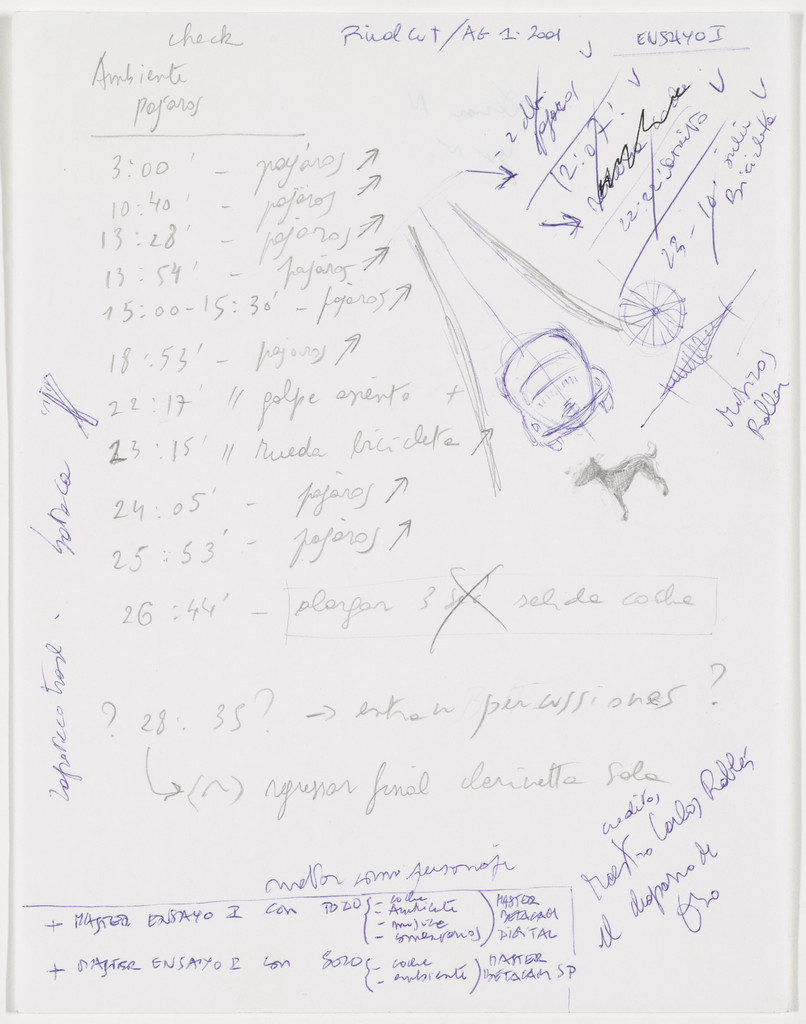 check
Final cut/AG 1. 2001
ENSAYO I
Ambiente
pájaros
3:00' - pájaros ↗
10:40' - pájaros ↗
13:28' - pájaros ↗
13:54' - pájaros ↗
15:00-15:30' - pájaros ↗
18:53' - pájaros ↗
22:17' " golpe asiento +
23:15' " rueda bicicleta ↗
24:05' - pájaros ↗
25:53' - pájaros ↗
26:44' - alargar 3 salida coche
? 28:35? → entran percussiones ?
regressar final clarinetta Sola
- 2 db pájaros
12:07'
22:22
23 - 10'
Bicicleta
Músicos
Roller
creditos
Maestro Carlos Robles
el diapasón de
Oro
motor como personaje
+ MASTER ENSAYO I con TODO { - coche
- Ambiente
- musica
- comentarios } MASTER BETACAM DIGITAL
+ MASTER ENSAYO I con SOLO { - coche
- ambiente } MASTER BETACAM SP